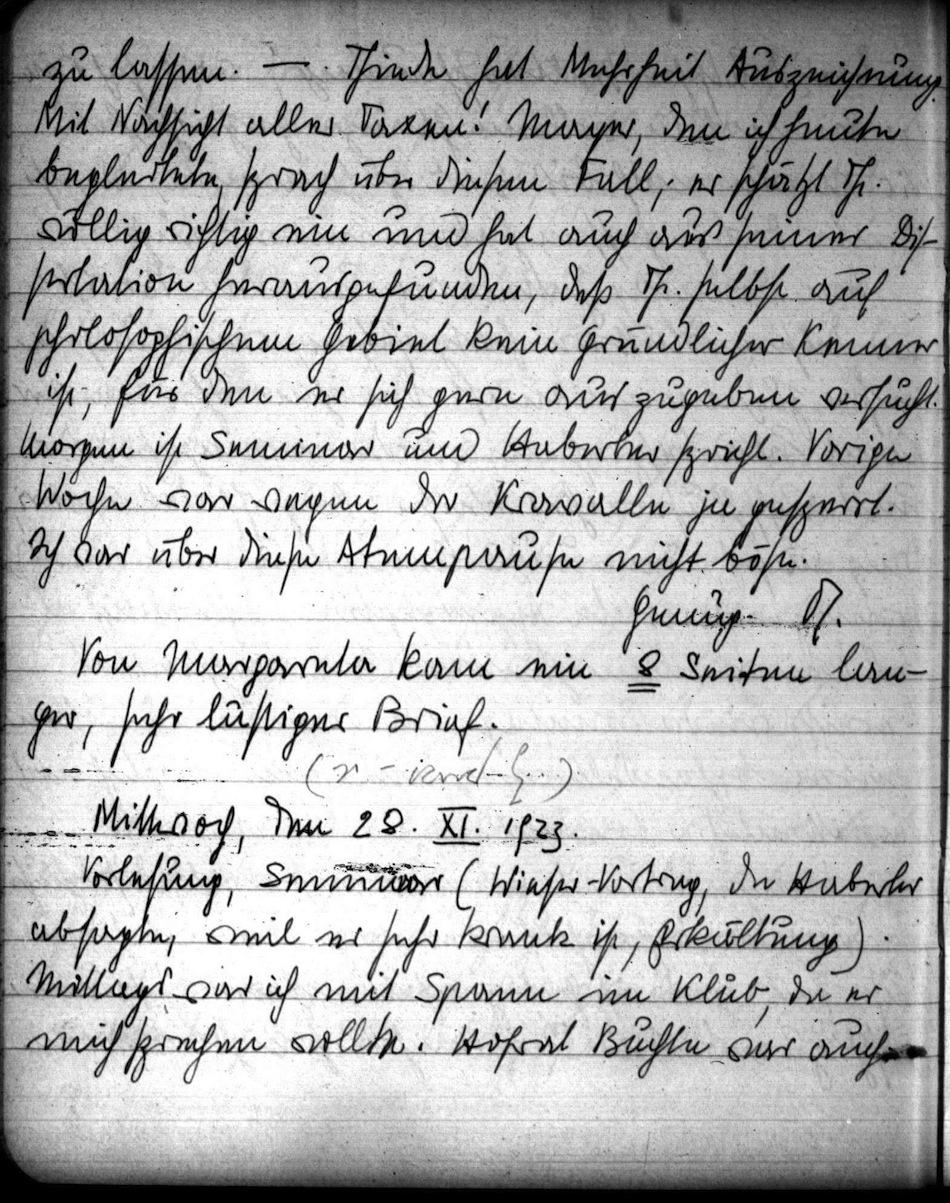 zu lassen. —. Thiede hat Mehrheit Auszeichnung
Mit Nachsicht aller Taxen! Mayer, den ich heute
begleitete, sprach über diesen Fall; er schätzt Th.
völlig richtig ein und hat auch aus seiner Dis-
sertation herausgefunden, daß Th. selbst auf
philosophischem Gebiet kein gründlicher Kenner
ist, für den er sich gern auszugeben versucht.
Morgen ist Seminar und Haberler spricht. Vorige
Woche war wegen der Krawalle ja gesperrt.
Ich war über diese Atempause nicht böse.
Genüg.
Von Margareta kam ein 8 Seiten lan-
ger, sehr lustiger Brief.
Mittwoch, den 28. XI. 1923.
Vorlesung, Seminar (Winser-Vortrag, da Haberler
absagte, weil er sehr krank ist, Erkältung).
Mittags war ich mit Spann im Klub, da er
mich sprechen wollte. Hofrat Buchle war auch